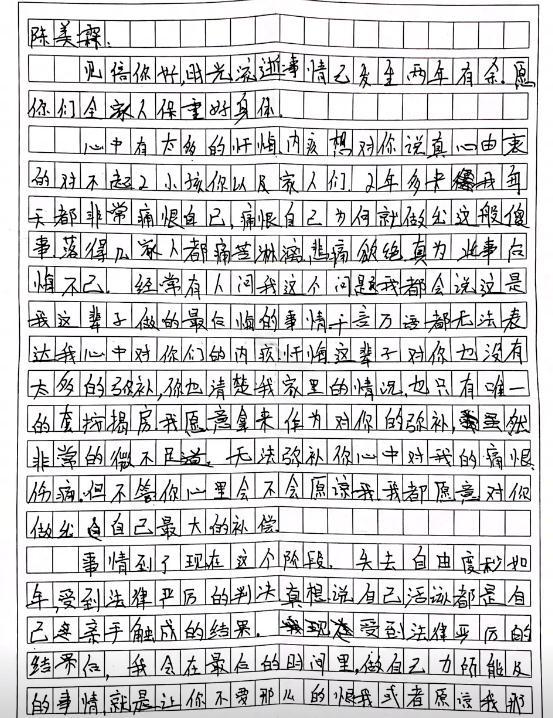 陈美霖.
见信你好,时光流逝事情已发生两年有余.愿
你们全家人保重好身体.
心中有太多的忏悔内疚想对你说真心由衷
的对不起2小孩你以及家人们,2年多来我每
天都非常痛恨自己,痛恨自己为何就做出这般傻
事,落得几家人都痛苦淋漓,悲痛欲绝真为此事后
悔不已.经常有人问我这个问题我都会说这是
我这辈子做的最后悔的事情千言万语都无法表
达我心中对你们的内疚忏悔这辈子对你也没有
太多的弥补,你也清楚我家里的情况,也只有唯一
的套按揭房我愿意拿来作为对你的弥补,虽然
非常的微不足道.无法弥补你心中对我的痛恨
伤痛.但不管你心里会不会原谅我我都愿意对你
做出自己最大的补偿
事情到了现在这个阶段.失去自由度秒如
年,受到法律严厉的判决真想说自己活该都是自
己亲手触成的结果.受到法律严厉的
结果后,我会在最后的时间里,做自己力所能及
的事情,就是让你不要那么的恨我或者原谅我那